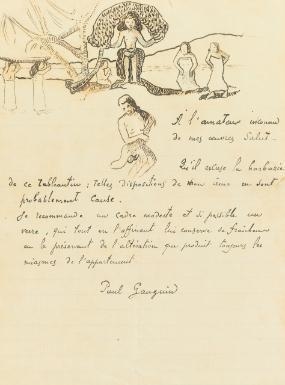 À l'amateur inconnu
de mes œuvres Salut -
Qu'il excuse la barbarie
de ce tableautin ; telles dispositions de mon âme en sont
probablement cause.
Je recommande un cadre modeste et si possible une
verre, qui tout en l'affinant lui conserve sa fraîcheur
en le préservant de l'altération que produit toujours les
miasmes de l'appartement
Paul Gauguin